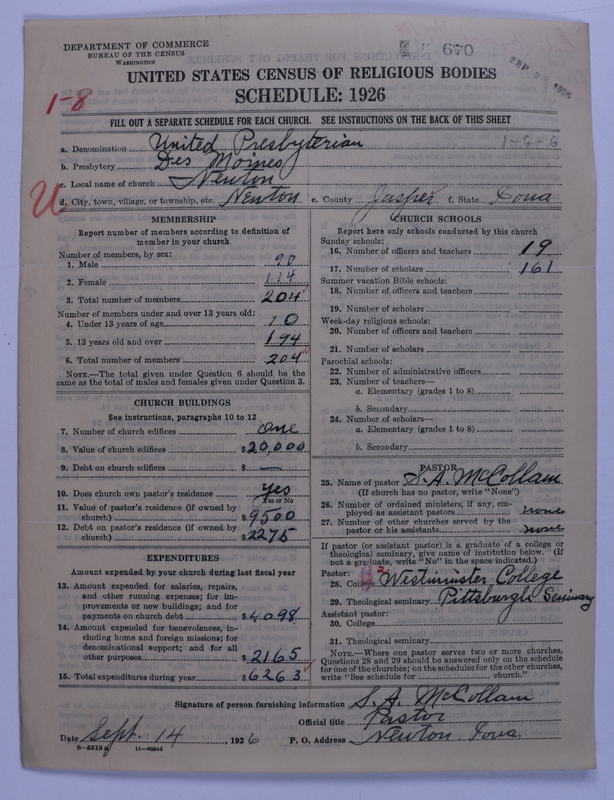 DEPARTMENT OF COMMERCE
BUREAU OF THE CENSUS
WASHINGTON
670
UNITED STATES CENSUS OF RELIGIOUS BODIES
SCHEDULE: 1926
1-8
FILL OUT A SEPARATE SCHEDULE FOR EACH CHURCH. SEE INSTRUCTIONS ON THE BACK OF THIS SHEET
a. Denomination United Presbyterian 1-6-6
b. Presbytery Des Moines
c. Local name of church Newton
d. City, town, village, or township, etc. Newton e. County Jasper f. State Iowa
MEMBERSHIP
Report number of members according to definition of
member in your church
Number of members, by sex:
1. Male 90
2. Female 114
3. Total number of members 204
Number of members under and over 13 years old:
4. Under 13 years of age 10
5. 13 years old and over 194
6. Total number of members 204
NOTE.—The total given under Question 6 should be the
same as the total of males and females given under Question 3.
CHURCH BUILDINGS
See instructions, paragraphs 10 to 12
7. Number of church edifices One
8. Value of church edifices $20,000
9. Debt on church edifices $ —
10. Does church own pastor's residence Yes
Yes or No
11. Value of pastor's residence (if owned by
church) $9500
12. Debt on pastor's residence (if owned by
church) $2275
EXPENDITURES
Amount expended by your church during last fiscal year
13. Amount expended for salaries, repairs,
and other running expenses; for im-
provements or new buildings; and for
payments on church debt $4098
14. Amount expended for benevolences, in-
cluding home and foreign missions; for
denominational support; and for all
other purposes $2165
15. Total expenditures during year $6263
CHURCH SCHOOLS
Report here only schools conducted by this church
Sunday schools:
16. Number of officers and teachers 19
17. Number of scholars 161
Summer vacation Bible schools:
18. Number of officers and teachers
19. Number of scholars
Week-day religious schools:
20. Number of officers and teachers
21. Number of scholars
Parochial schools:
22. Number of administrative officers
23. Number of teachers—
a. Elementary (grades 1 to 8)
b. Secondary
24. Number of scholars—
a. Elementary (grades 1 to 8)
b. Secondary
PASTOR
25. Name of pastor S. A. McCollam
(If church has no pastor, write "None")
26. Number of ordained ministers, if any, em-
ployed as assistant pastors none
27. Number of other churches served by the
pastor or his assistants none
If pastor (or assistant pastor) is a graduate of a college or
theological seminary, give name of institution below. (If
not a graduate, write "No" in the space indicated.)
Pastor:
28. College Westminster College
29. Theological seminary Pittsburgh Seminary
Assistant pastor:
30. College
31. Theological seminary
NOTE.—Where one pastor serves two or more churches,
Questions 28 and 29 should be answered only on the schedule
for one of the churches; on the schedules for the other churches,
write "See schedule for church."
Signature of person furnishing information S. A. McCollam
Official title Pastor
Date Sept. 14, 1926 P. O. Address Newton Iowa.